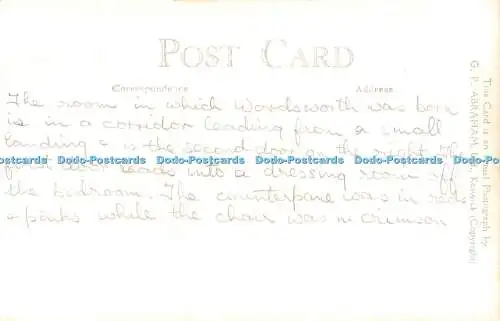 POST CARD
Correspondence
Address
The room in which Wordsworth was born
is in a corridor leading from a small
landing & is the second door on the right. The
first door leads into a dressing room off
the bedroom. The counterpane was in reds
& pinks while the chair was in crimson
Dodo-Postcards Dodo-Postcards Dodo-Postcards Dodo-Postcards Dodo-Postcards Dodo-Postcards
This Card is an Photograph by
G. P. ABRAHAM, Keswick (Copyright)